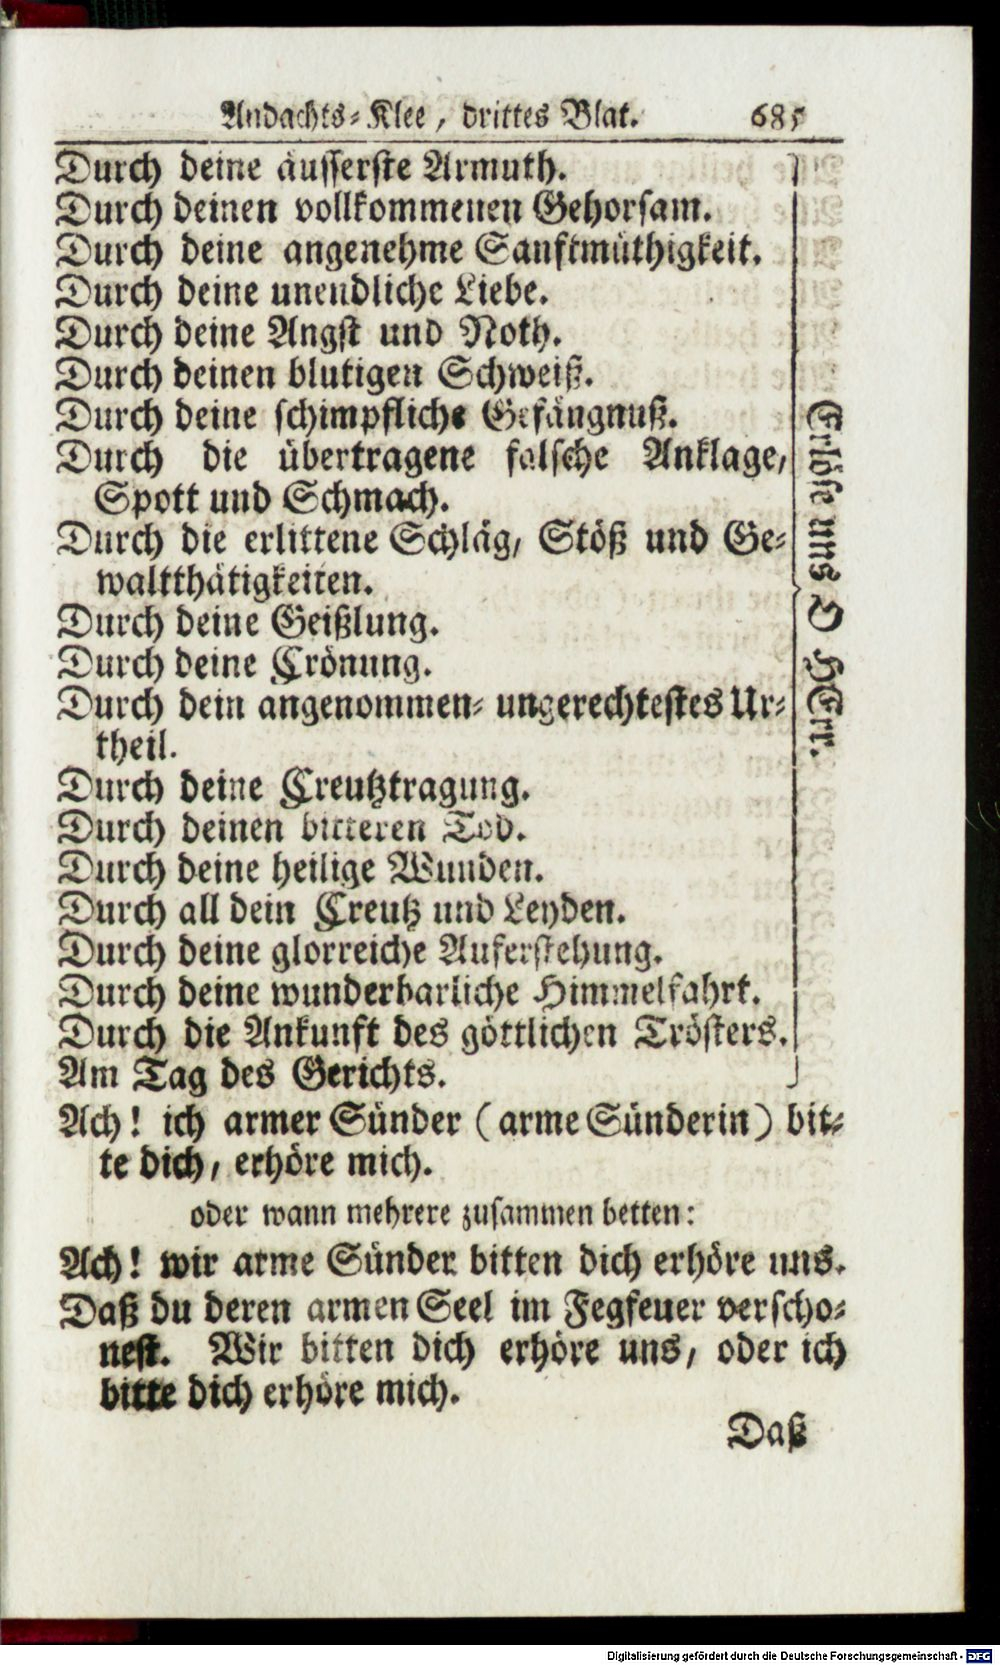 Andachts-Klee, drittes Blat. 685
Durch deine äusserste Armuth.
Durch deinen vollkommenen Gehorsam.
Durch deine angenehme Sanftmüthigkeit.
Durch deine unendliche Liebe.
Durch deine Angst und Noth.
Durch deinen blutigen Schweiß.
Durch deine schimpfliche Gefängnuß.
Durch die übertragene falsche Anklage,
Spott und Schmach.
Durch die erlittene Schläg, Stöß und Ge-
waltthätigkeiten.
Durch deine Geißlung.
Durch deine Crönung.
Durch dein angenommen- ungerechtestes Ur-
theil.
Durch deine Creutztragung.
Durch deinen bitteren Tod.
Durch deine heilige Wunden.
Durch all dein Creutz und Leyden.
Durch deine glorreiche Auferstehung.
Durch deine wunderbarliche Himmelfahrt.
Durch die Ankunft des göttlichen Trösters.
Am Tag des Gerichts.
Erlöse uns O HErr.
Ach! ich armer Sünder (arme Sünderin) bit-
te dich, erhöre mich.
oder wann mehrere zusammen betten:
Ach! wir arme Sünder bitten dich erhöre uns.
Daß du deren armen Seel im Fegfeuer verscho-
nest. Wir bitten dich erhöre uns, oder ich
bitte dich erhöre mich.
Daß
Digitalisierung gefördert durch die Deutsche Forschungsgemeinschaft - DFG